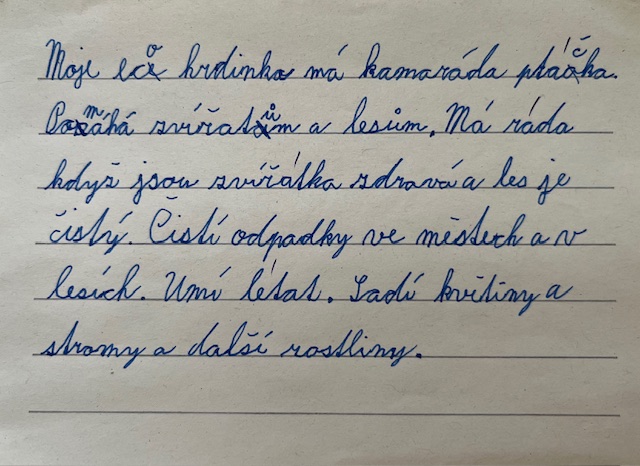 Moje eco hrdinka má kamaráda ptáčka.
Pomáhá zvířatům a lesům. Má ráda
když jsou zvířátka zdravá a les je
čistý. Čistí odpadky ve městech a v
lesích. Umí létat. Sadí květiny a
stromy a další rostliny.